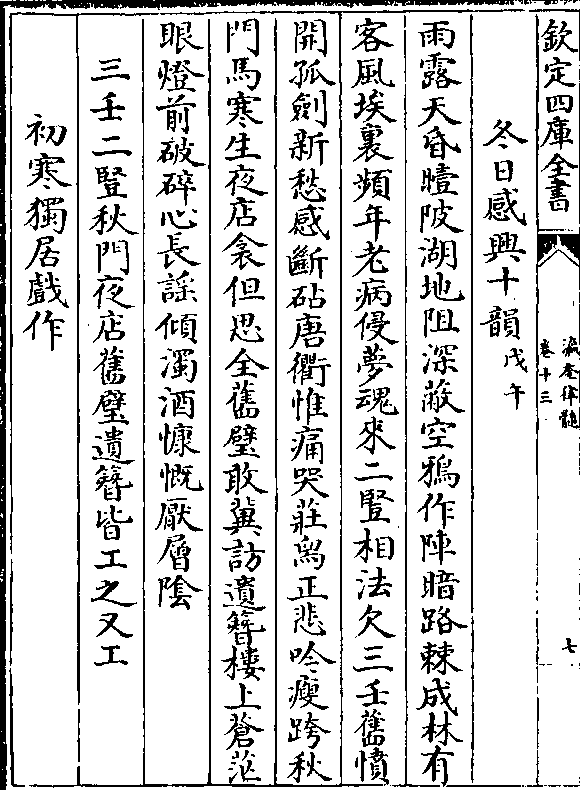 欽定四庫全書
瀛奎律髓
卷十三
七
冬日感興十韻戊午
雨露天昏曀陂湖地阻深蔽空鴉作陣暗路棘成林有
客風埃裏頻年老病侵夢魂來二豎相法欠三壬舊憤
開孤劍新愁感斷砧唐衢惟痛哭莊舄正悲吟瘦跨秋
門馬寒生夜店衾但思全舊璧敢冀訪遺簪樓上蒼茫
眼燈前破碎心長謡傾濁酒慷慨厭層陰
三壬二豎秋門夜店舊璧遺簪皆工之又工
初寒獨居戲作